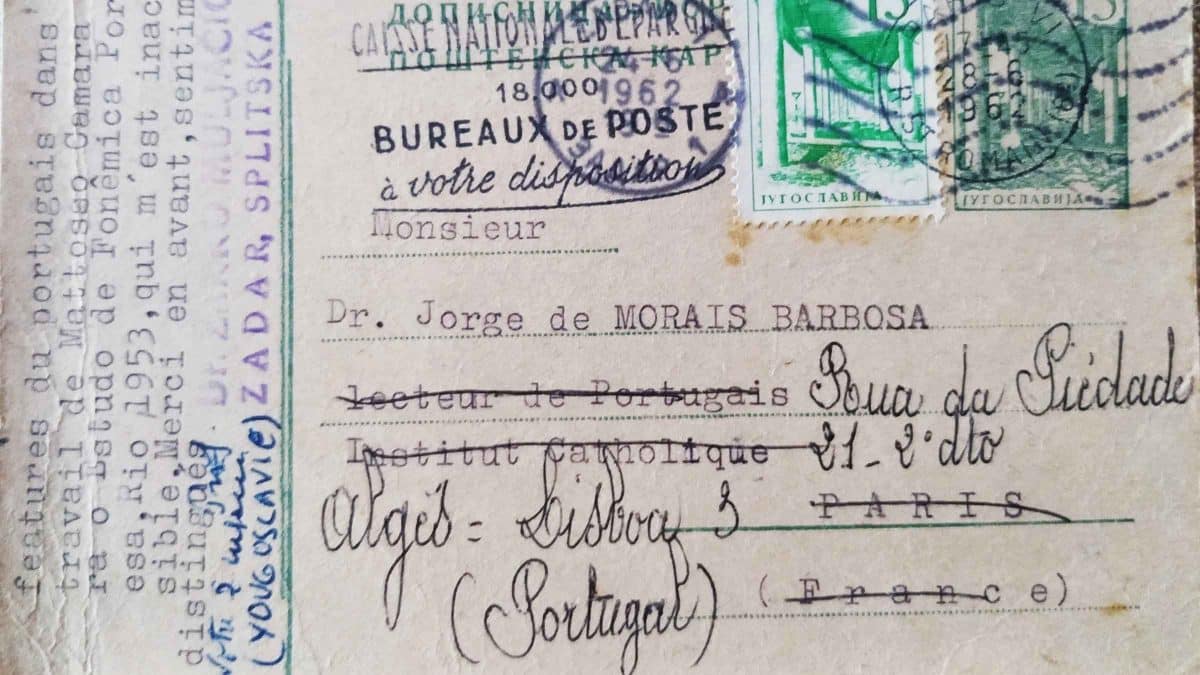 features du portugais dans
travail de Mattoseo Camara
ra o Estudo de Fonêmica Por
esa, Rio 1953, qui m´est inac
sible, Merci en avant, sentim
distingués
ZADAR, SPLITSKA
(YOUGOSLAVIE)
ДОПИСНИ
CAISSE NATIONALE D'EPARGNE
ПОШТЕНСКА КАР
18.000
BUREAUX DE POSTE
à votre disposition
24 6
1962
28-6
1962
15
15
ЈУГОСЛАВИЈА
ЈУГОСЛАВИЈА
Monsieur
Dr. Jorge de MORAIS BARBOSA
lecteur de Portugais Roua da Piédade
Institut Catholique 21-2º dto
PARIS
Algés = Lisboa 3
(France)
(Portugal)